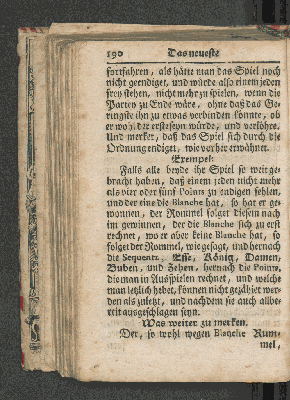 190 Das neueste
fortfahren, als hätte man das Spiel noch
nicht geendiget, und würde also einem jeden
frey stehen, nicht mehr zu spielen, wenn die
Partey zu Ende wäre, ohne daß das Ge-
ringste ihn zu etwas verbinden könnte, ob
er wohl der erste seyn würde, und verlöhre.
Und merket, daß das Spiel sich durch die
Ordnung endiget, wie vorher erwähnet.
Exempel:
Falls alle beyde ihr Spiel so weit ge-
bracht haben, daß einem jeden nicht mehr
als vier oder fünf Points zu endigen fehlen,
und der eine die Blanche hat, so hat er ge-
wonnen, der Rommel folget diesen nach
im gewinnen, der die Blanche sich zu erst
rechnet, wo er aber keine Blanche hat, so
folget der Rommel, wie gesagt, und hernach
die Sequenz, Esse, König, Damen,
Buben, und Zehen, hernach die Points,
die man im Ausspielen rechnet, und welche
man letzlich hebet, können nicht gezählet wer-
den als zuletzt, und nachdem sie auch allbe-
reit ausgeschlagen seyn.
Was weiter zu merken.
Der, so wohl wegen Blanche Rum-
mel,